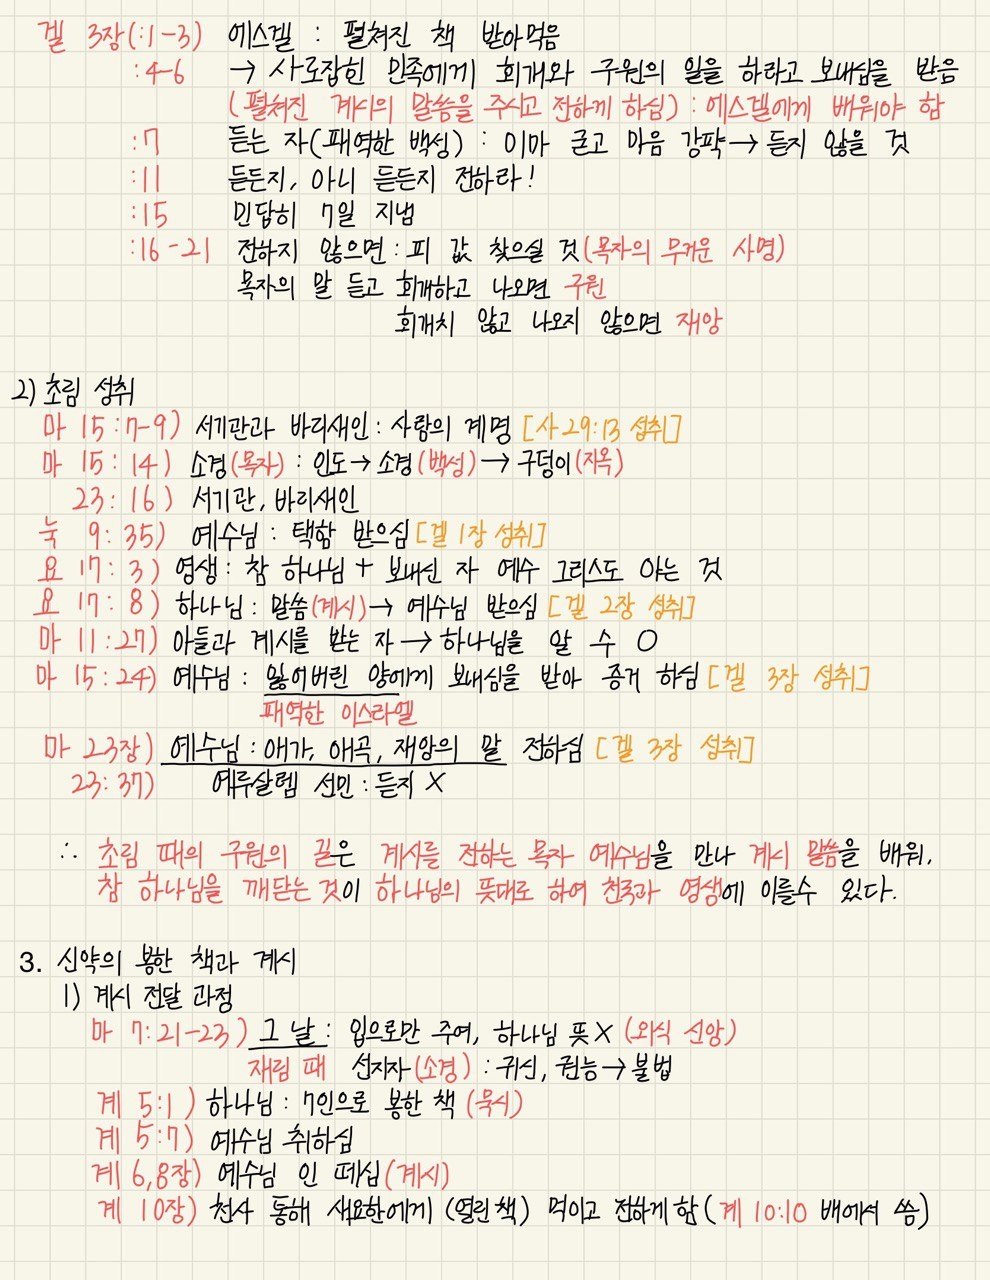 겔 3장(:1-3) 에스겔 : 펼쳐진 책 받아먹음
:4-6 → 사로잡힌 민족에게 회개와 구원의 일을 하라고 보내심을 받음
(펼쳐진 계시의 말씀을 주시고 전하게 하심) : 에스겔에게 배워야 함
:7 듣는 자(패역한 백성) : 이마 굳고 마음 강퍅→듣지 않을 것
:11 듣든지, 아니 듣든지 전하라!
:15 민답히 7일 지냄
:16-21 전하지 않으면 : 피 값 찾으실 것(목자의 무거운 사명)
목자의 말 듣고 회개하고 나오면 구원
회개치 않고 나오지 않으면 재앙
2) 초림 성취
마 15:7-9) 서기관과 바리새인 : 사람의 계명 [사29:13 성취]
마 15:14) 소경(목자) : 인도→소경(백성)→구덩이(지옥)
23:16) 서기관, 바리새인
눅 9:35) 예수님 : 택함 받으심 [겔 1장 성취]
요 17:3) 영생 : 참 하나님 + 보내신 자 예수 그리스도 아는 것
요 17:8) 하나님 : 말씀(계시)→ 예수님 받으심 [겔 2장 성취]
마 11:27) 아들과 계시를 받는 자→하나님을 알 수 O
마 15:24) 예수님 : 잃어버린 양에게 보내심을 받아 증거 하심 [겔 3장 성취]
패역한 이스라엘
마 23장) 예수님 : 애가, 애곡, 재앙의 말 전하심 [겔 3장 성취]
23:37) 예루살렘 선민 : 듣지 X
∴ 초림 때의 구원의 길은 계시를 전하는 목자 예수님을 만나 계시 말씀을 배워,
참 하나님을 깨닫는 것이 하나님의 뜻대로 하여 천국과 영생에 이를수 있다.
3. 신약의 봉한 책과 계시
1) 계시 전달 과정
마 7:21-23) 그 날 : 입으로만 주여, 하나님 뜻X (외식 신앙)
재림 때 선지자(소경) : 귀신, 권능→불법
계 5:1) 하나님 : 7인으로 봉한 책 (묵시)
계 5:7) 예수님 취하심
계 6,8장) 예수님 인 떼심(계시)
계 10장) 천사 통해 새요한에게 (열린책) 먹이고 전하게함(계 10:10 배에서 씀)